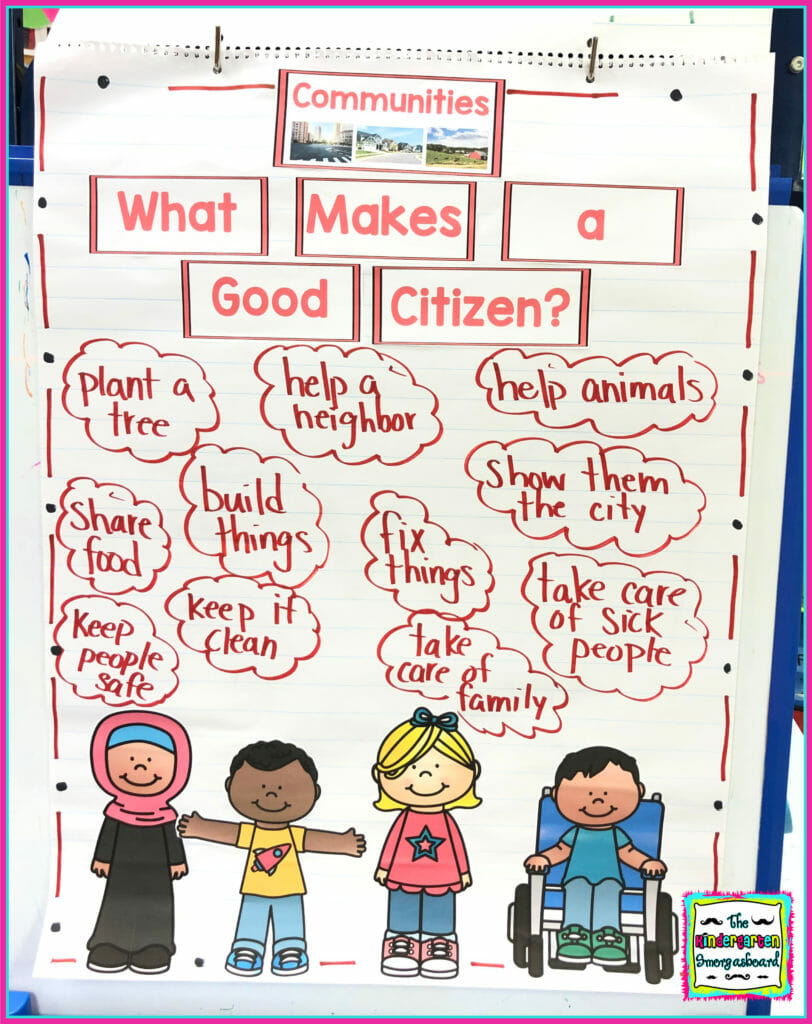 Communities
What Makes a
Good Citizen?
plant a
tree
help a
neighbor
help animals
share
food
build
things
fix
things
show them
the city
Keep
people
safe
keep it
clean
take
care of
family
take care
of sick
people
The
Kindergarten
Smorgasboard